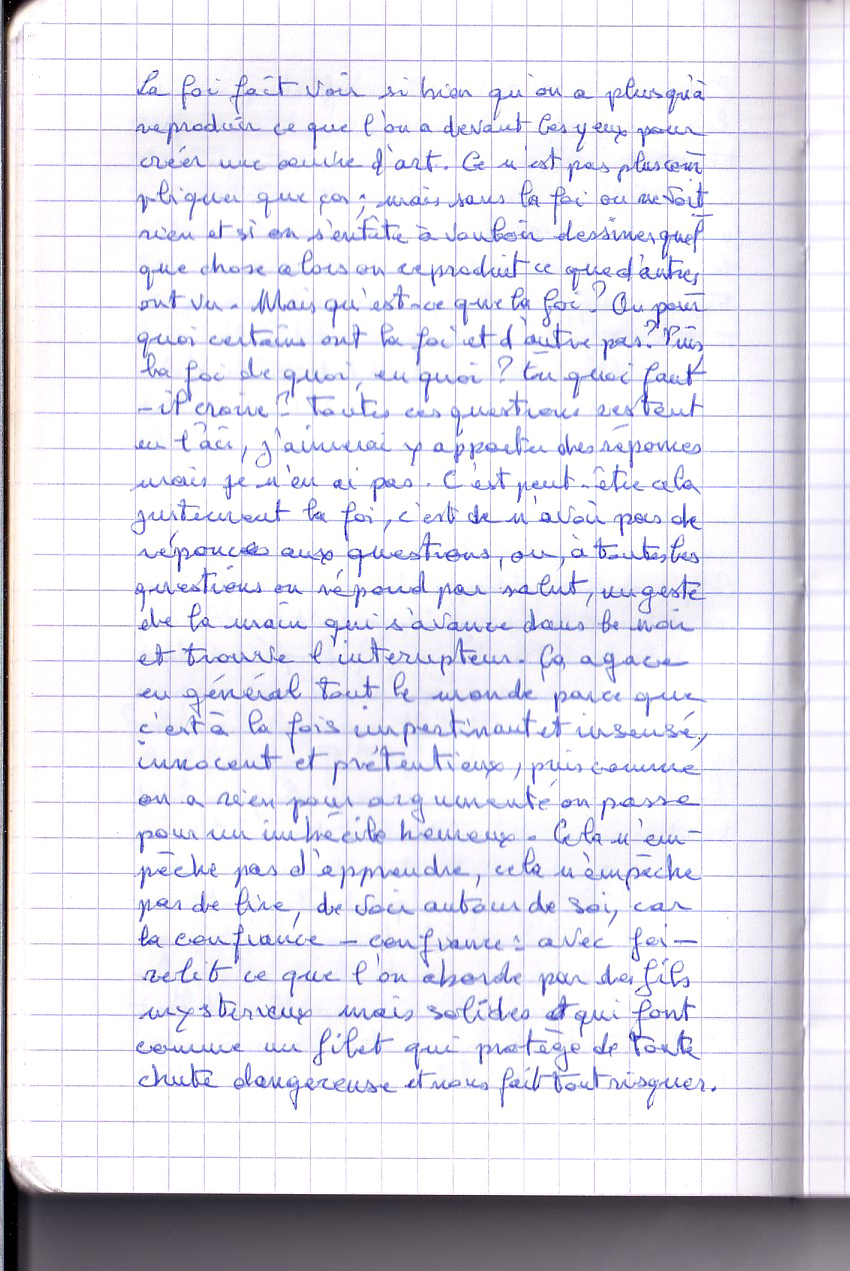 La foi fait voir si bien qu'on a plus qu'à
reproduir ce que l'on a devant les yeux pour
créer une œuvre d'art. Ce n'est pas plus com
pliquer que ça ; mais sans la foi on ne voit
rien et si on s'entête à vouloir dessiner quel
que chose alors on reproduit ce que d'autres
ont vu. Mais qu'est-ce que la foi ? Ou pour
quoi certains ont la foi et d'autre pas ? Puis,
la foi de quoi, en quoi ? En quoi faut
-il croire ? Toutes ces questions restent
en l'air, j'aimerai y apporter des réponses
mais je n'en ai pas. C'est peut-être cela
justement la foi, c'est de n'avoir pas de
réponces aux questions, ou, à toutes les
questions on répond par salut, un geste
de la main qui s'avance dans le noir
et trouve l'interrupteur. Ça agace
en général tout le monde parce que
c'est à la fois impertinant et insensé,
innocent et prétentieux, puis comme
on a rien pour argumenté on passe
pour un imbécile heureux. Cela n'em-
pêche pas d'apprendre, cela n'empêche
pas de lire, de voir autour de soi, car
la confiance – confiance : avec foi –
relit ce que l'on aborde par des fils
mystérieux mais solides et qui font
comme un filet qui protège de toute
chute dangereuse et nous fait tout risquer.